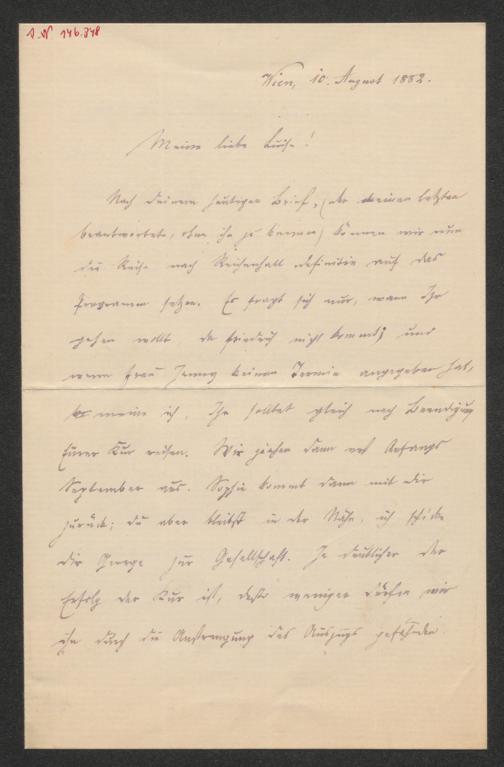 J.N 146.348
Wien, 10. August 1882.
Meine liebe Luise!
Nach Deinem heutigen Brief, (der meinen letzten
beantwortete, ohne ihn zu kennen) können wir nun
die Reise nach Reichenhall definitiv auf das
Programm setzen. Es fragt sich nur, wann Ihr
gehen wollt, da Friedrich nicht kommt; und
wenn Frau Jenny keinen Termin angegeben hat,
so meine ich, Ihr solltet gleich nach Beendigung
Eurer Kur reisen. Wir ziehen dann erst Anfangs
September aus. Sophie kommt dann mit Dir
zurück; Du aber bleibst in der Nähe, ich schicke
Dir George zur Gesellschaft. Je deutlicher der
Erfolg der Kur ist, desto weniger dürfen wir
ihn durch die Anstrengung des Auszugs gefährden.